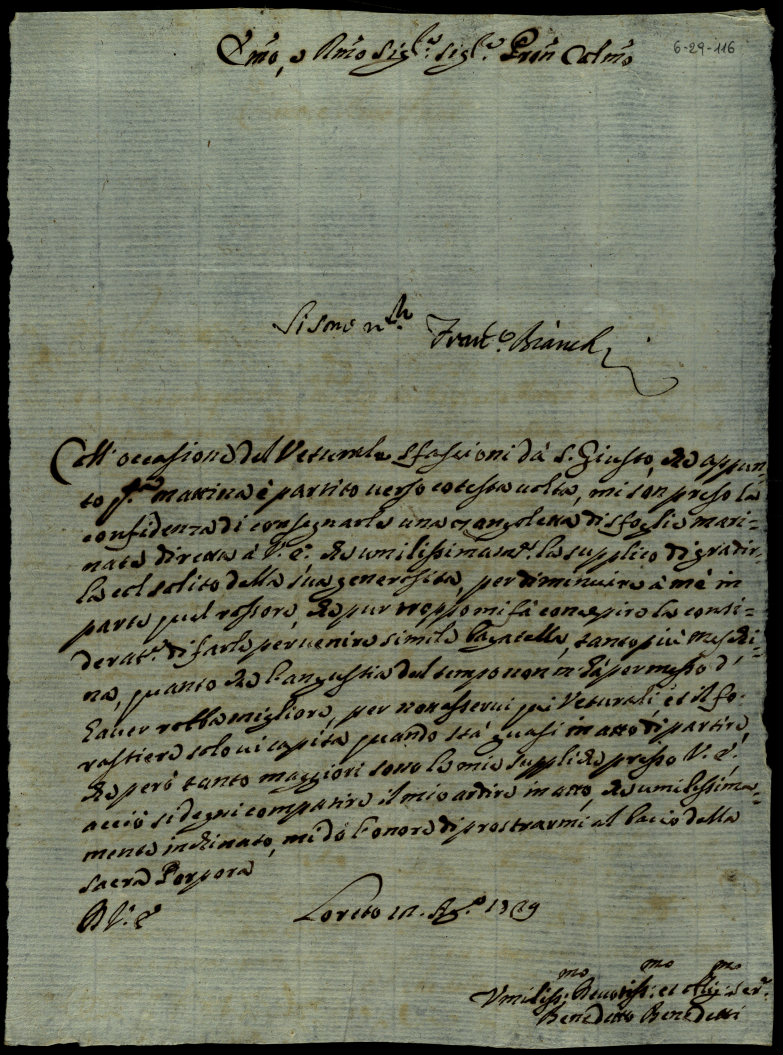 6-29-116
Em̃o, e Rm̃o Sig.r Sig.r Pron̄ Colm̃o
Franc.o Bianch
All'occasione del Vetturale Sfascioni da S. Giusto, che appun=
to q.ta mattina è partito verso cotesta volta, mi son preso la
confidenza di consegnarle una cangoletta di sfoglie mari=
nate diretta à V. E. che umilissimam.te la supplico di gradir=
la col solito della sua generosità, per diminuire à me in
parte quel rossore, che pur troppo mi fà concepire la consi=
deraz.e di farle pervenire simile bagatella, tanto più meschi=
na, quanto che l'angustia del tempo non m'hà permesso d'
haver robba migliore, per non esservi qui Veturali, et il fo=
rastiere solo vi capita quando stà quasi in atto di partire,
che però tanto maggiori sono le mie suppliche presso V. E.
acciò si degni compatire il mio ardire in atto, che umilissima=
mente inchinato, mi dò l'onore di prostrarmi al bacio della
Sacra Porpora
D V. E.
Loreto Ag.o
Umiliss.mo Devotiss.mo et Oblig.mo Ser.e
Benedetto Benedetti